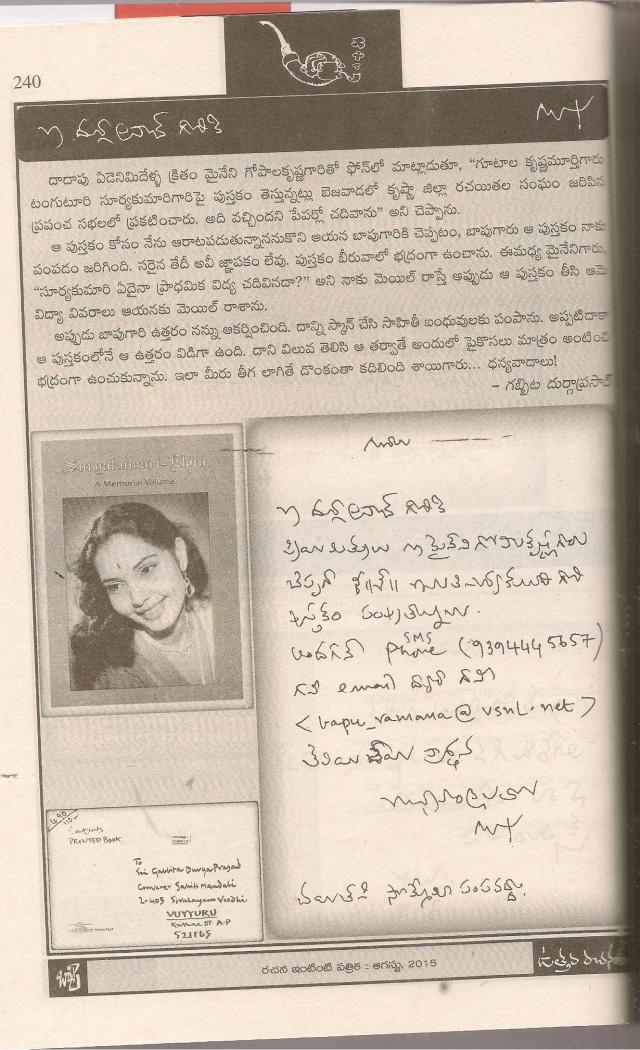 240
శ్రీ దుర్గాప్రసాద్ గారికి
దాదాపు ఏడెనిమిదేళ్ళ క్రితం మైనేని గోపాలకృష్ణగారితో ఫోన్‌లో మాట్లాడుతూ, "గూటాల కృష్ణమూర్తిగారు
టంగుటూరి సూర్యకుమారిగారిపై పుస్తకం తెస్తున్నట్లు బెజవాడలో కృష్ణా జిల్లా రచయితల సంఘం జరిపిన
ప్రపంచ సభలలో ప్రకటించారు. అది వచ్చిందని పేపర్లో చదివాను" అని చెప్పాను.
ఆ పుస్తకం కోసం నేను ఆరాటపడుతున్నాననుకొని ఆయన బాపుగారికి చెప్పటం, బాపుగారు ఆ పుస్తకం నాకు
పంపడం జరిగింది. సరైన తేదీ అవీ జ్ఞాపకం లేవు. పుస్తకం బీరువాలో భద్రంగా ఉంచాను. ఈమధ్య మైనేనిగారు,
"సూర్యకుమారి ఏదైనా ప్రాధమిక విద్య చదివినదా?" అని నాకు మెయిల్ రాస్తే అప్పుడు ఆ పుస్తకం తీసి ఆమె
విద్యా వివరాలు ఆయనకు మెయిల్ రాశాను.
అప్పుడు బాపుగారి ఉత్తరం నన్ను ఆకర్షించింది. దాన్ని స్కాన్ చేసి సాహితీ బంధువులకు పంపాను. అప్పటిదాకా
ఆ పుస్తకంలోనే ఆ ఉత్తరం విడిగా ఉంది. దాని విలువ తెలిసి ఆ తర్వాతే అందులో పైకొసలు మాత్రం అంటించి
భద్రంగా ఉంచుకున్నాను. ఇలా మీరు తీగ లాగితే డొంకంతా కదిలింది శాయిగారు... ధన్యవాదాలు!
– గబ్బిట దుర్గాప్రసాద్
Suryakumari - Elvin
A Memorial Volume
శ్రీ దుర్గాప్రసాద్ గారికి
ప్రియ మిత్రులు శ్రీ మైనేని గోపాలకృష్ణ గారు
చెప్పగా
పుస్తకం పంపుతున్నాను.
అందగానే phone SMS (9394445657)
గానీ email ద్వారా గానీ
<bapu_ramana@vsnl.net>
తెలియ చేయ ప్రార్థన
Contents
PRINTED BOOK
To
Sri Gabbita Durga Prasad
Convener Sahiti Mandali
2-405 Sivalayam Veedhi
VUYYURU
Krishna DT A.P
521165
బాపు
రచన ఇంటింటి పత్రిక : ఆగస్టు, 2015
ఉత్తమ రచన